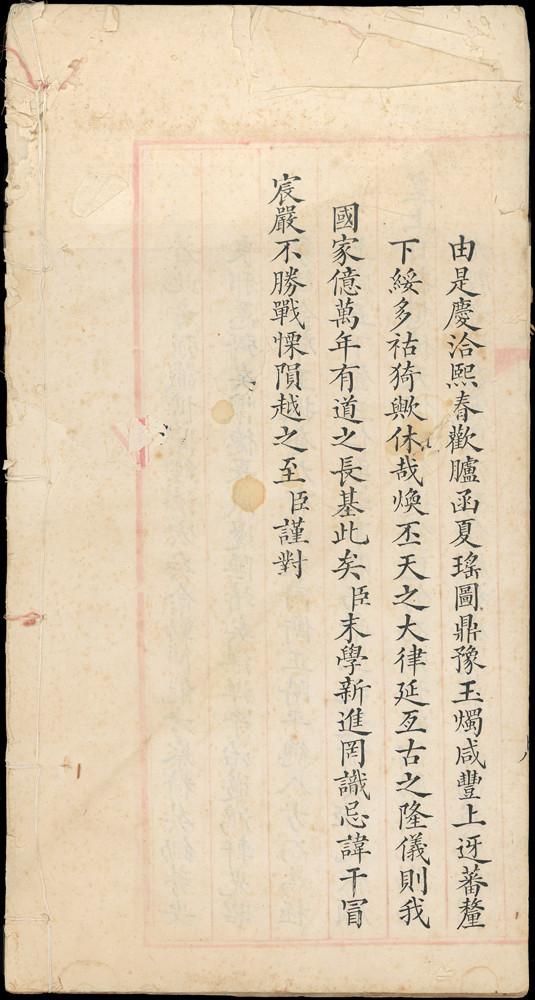 由是慶洽熙春歡臚函夏瑤圖鼎豫玉燭咸豐上迓蕃釐
下綏多祜猗歟休哉煥丕天之大律延亙古之隆儀則我
國家億萬年有道之長基此矣臣末學新進罔識忌諱干冒
宸嚴不勝戰慄隕越之至臣謹對